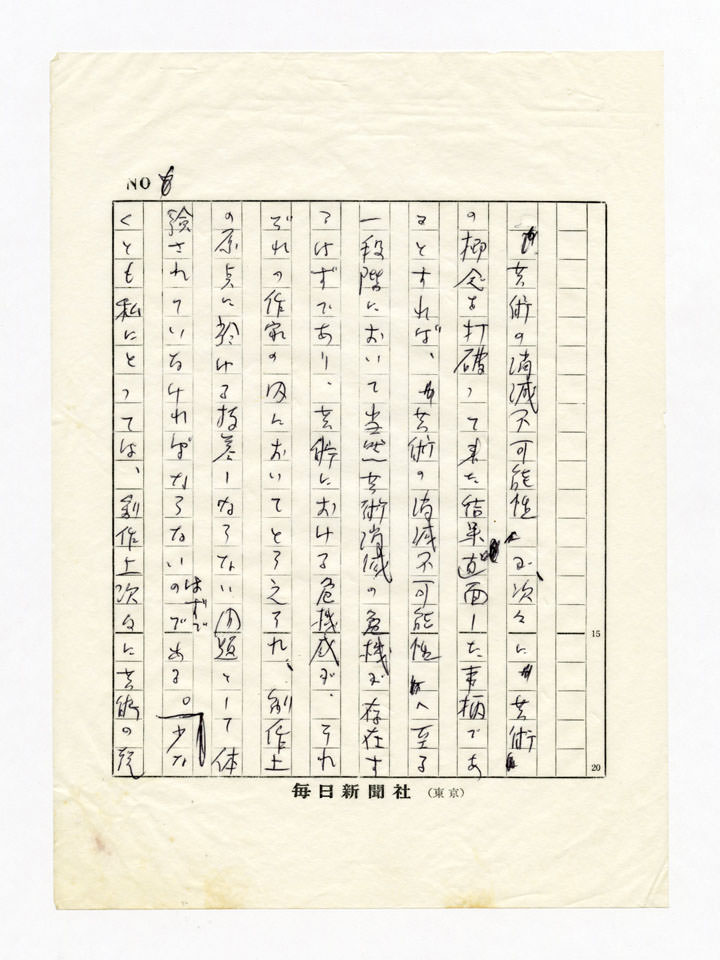 NO 6
芸術の消滅不可能性が、次々に〝芸術〟
の概念を打破って来た結果直面した事柄であ
るとすれば、〝芸術の消滅不可能性へ至る
一段階において当然芸術消滅の危機が存在す
るはずであり、芸術における危機感が、それ
ぞれの作家の内においてとらえられ、創作上
の原点に於ける抜差しならない問題として体
験されていなければならないはずで
のである。少な
くとも私にとっては、創作上次々に芸術の
15
20
毎日新聞社（東京）